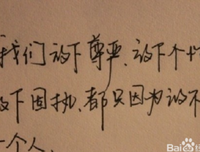 我们放下尊严、放下个
放下固执、都只因为放不
一个人
Baidu